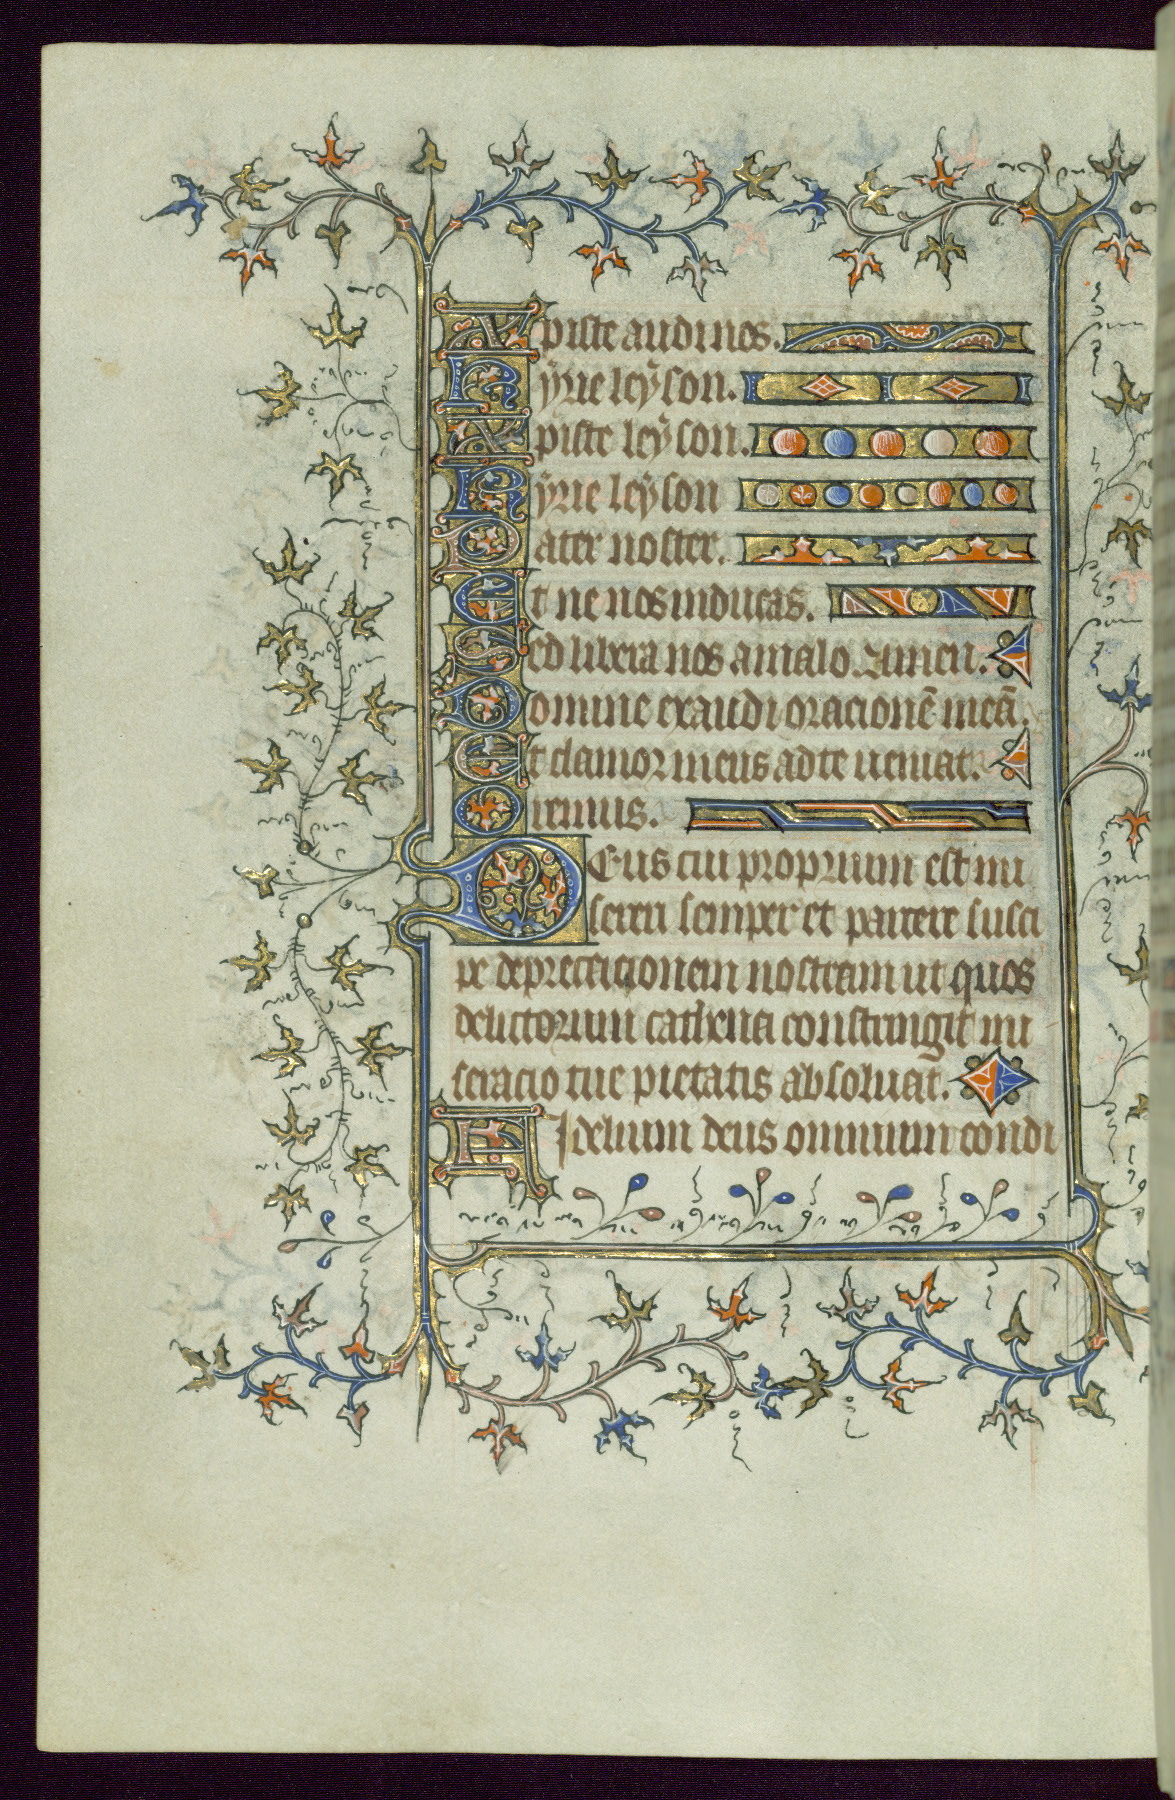 Xpiste audi nos.
Kyrie leyson.
Xpiste leyson.
Kyrie leyson
Pater noster.
Et ne nos inducas.
Sed libera nos a malo. Amen.
Domine exaudi oracionē meā.
Et clamor meus ad te ueniat.
Oremus.
DEus cui proprium est mi
sereri semper et parcere susci
pe deprecacionem nostram ut quos
delictorum cathena constringit mi
seracio tue pietatis absoluat.
FIdelium deus omnium condi